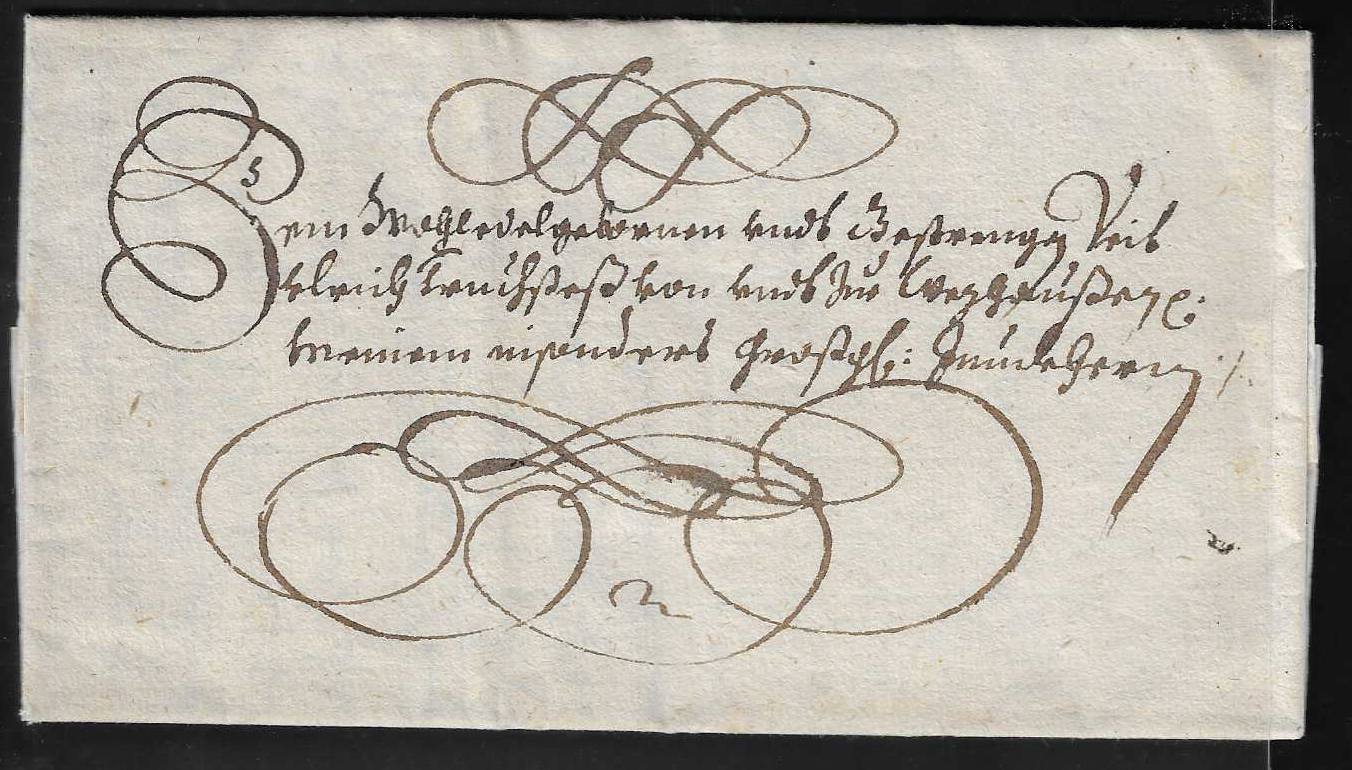 Dem Wohledelgebornen vnds Gestrengen Veit
Vlrich Truchseß von vnds Zue Wezhaußen p:
Meinem insonders Großgl: Junckherrn